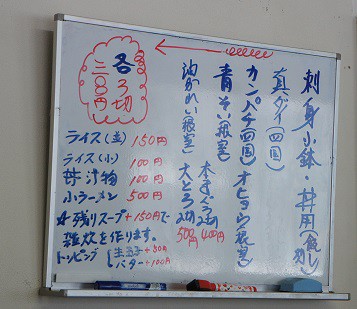 刺身小鉢・丼用(飯し別)
真ダイ(四国)
カンパチ(四国) オヒョウ(根室)
青そい(根室) 本まぐろ2切400円
油かれい(根室) 大とろ2切500円
各3切
三〇〇円
ライス(並) 150円
ライス(小) 100円
丼汁物 100円
小ラーメン 500円
☆残りスープ+150円で
雑炊を作ります。
トッピング 生玉子+50円
バター+100円